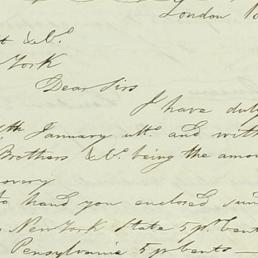 London
& Co.
York
Dear Sirs
I have duly
th January ult. and with
Brothers & Co. being the amou
covery
to hand you enclosed sun
New York State 5 p. Cents
Pensylvania 5 p Cents —